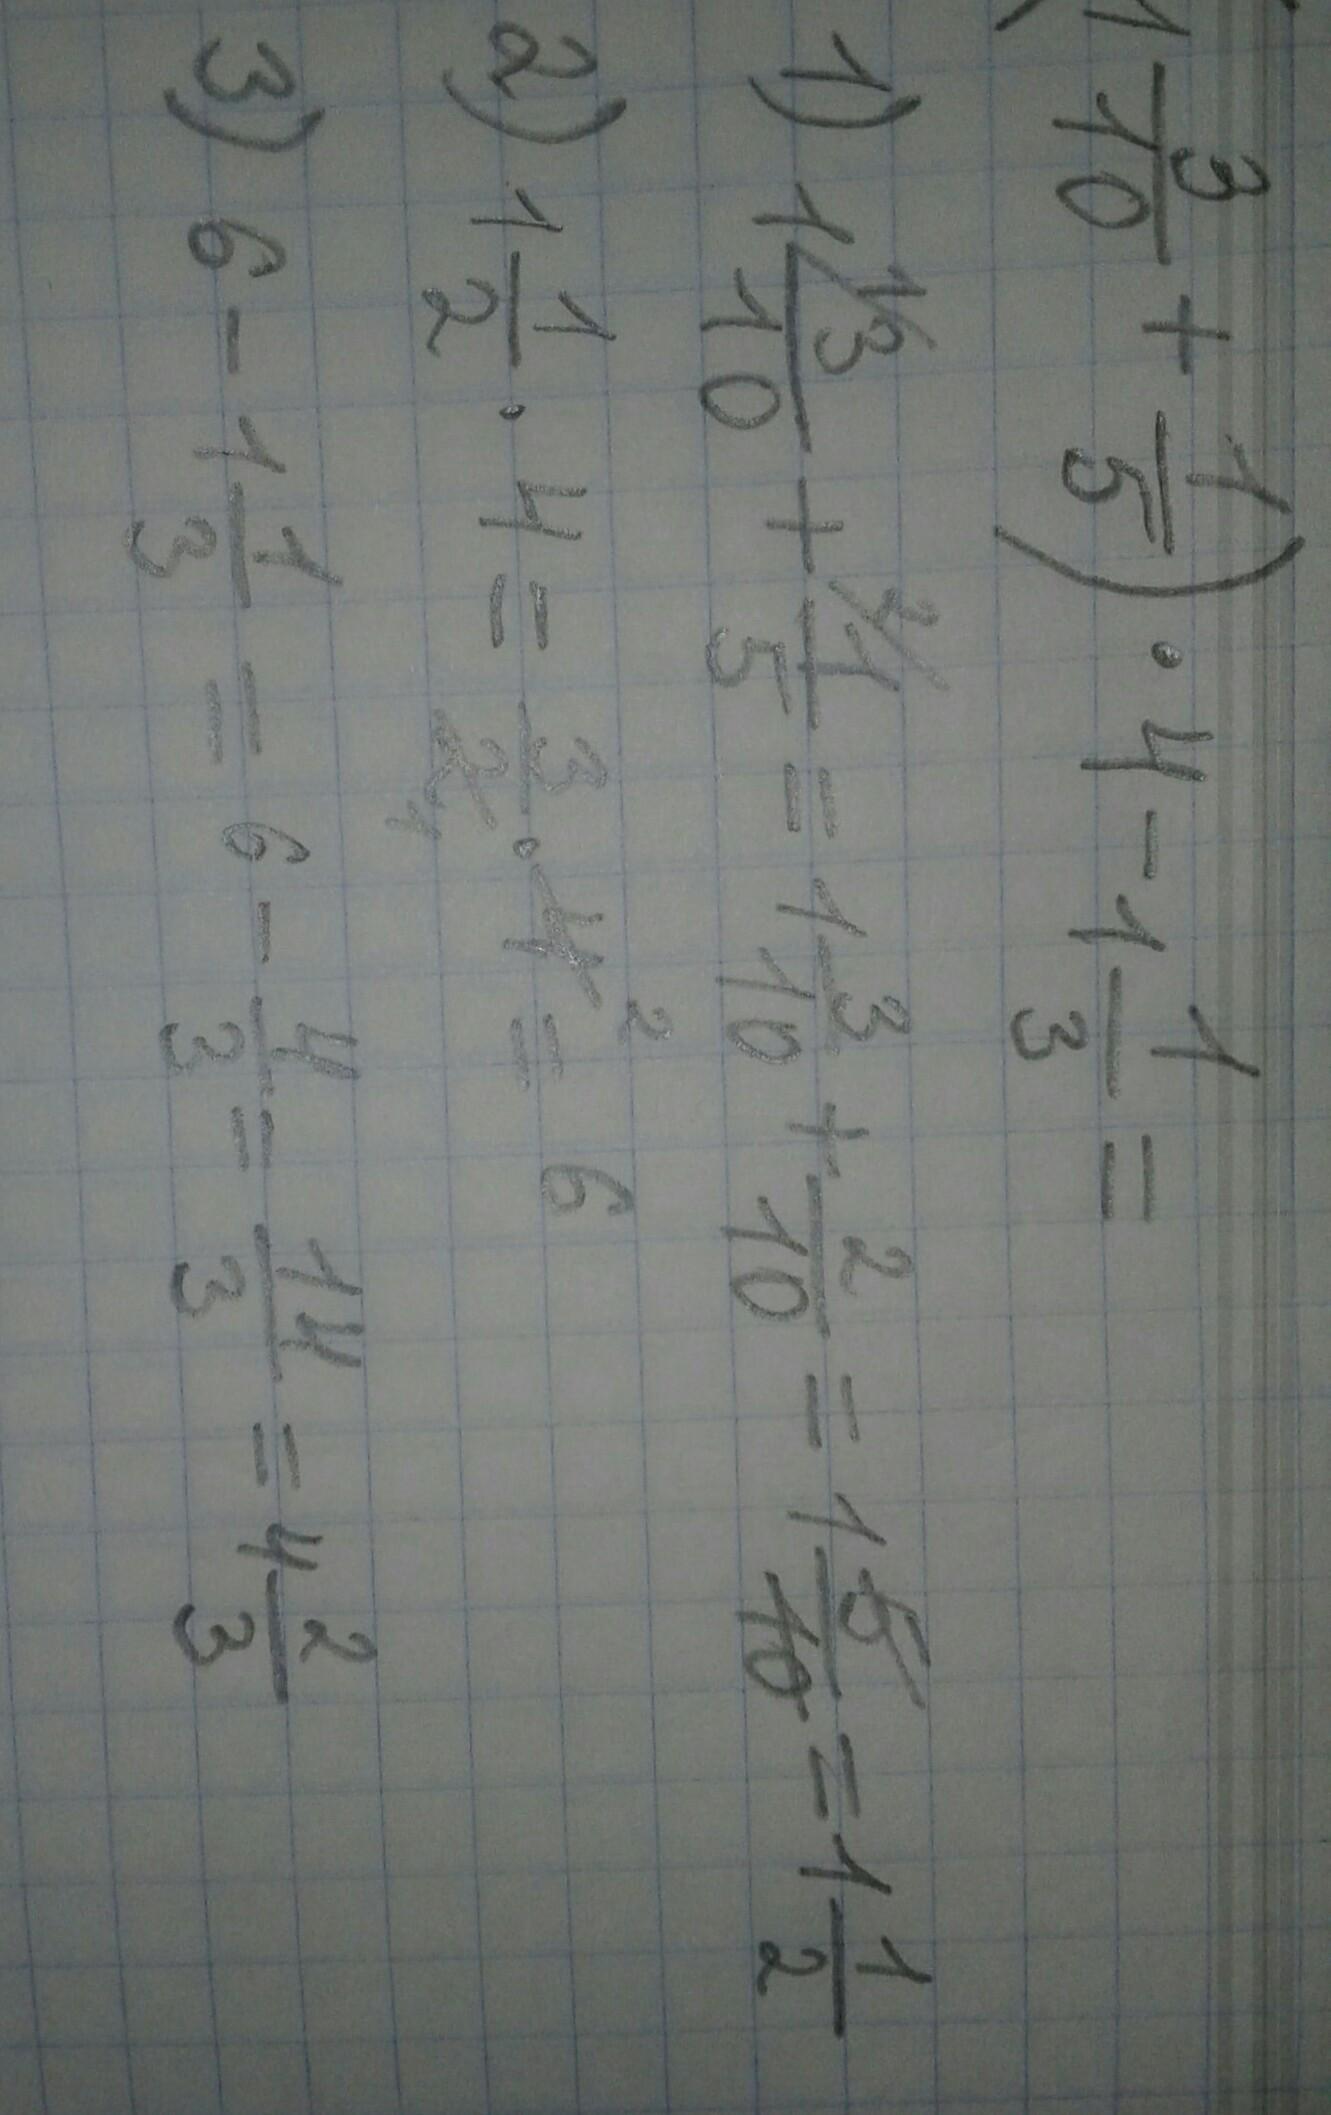 (1 3/10 + 1/5) · 4 - 1 1/3 =
1) 1 3/10 + 1/5 = 1 3/10 + 2/10 = 1 5/10 = 1 1/2
2) 1 1/2 · 4 = 3/2 · 4 = 6
3) 6 - 1 1/3 = 6 - 4/3 = 14/3 = 4 2/3